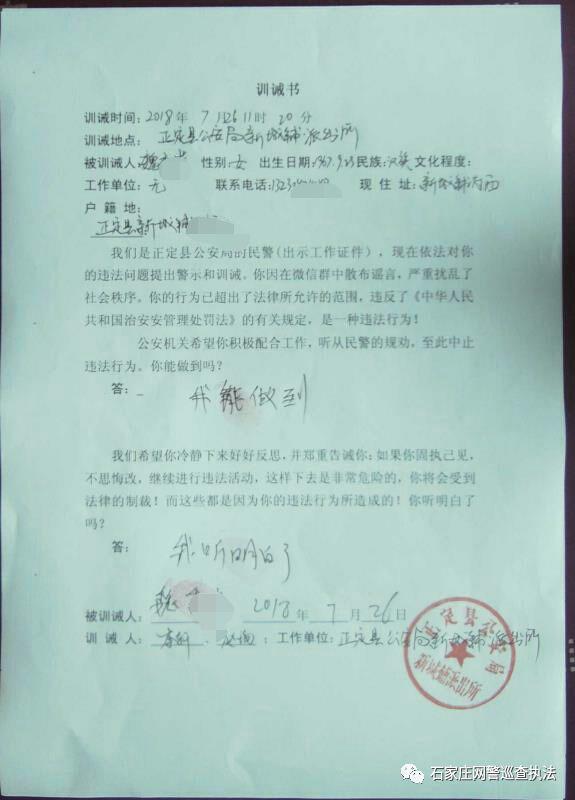 训诫书
训诫时间:2018年 7月26 11时 20分
训诫地点: 正定县公安局新城铺派出所
被训诫人 魏 性别:女 出生日期:1967.9.23 民族:汉族 文化程度:
工作单位:无 联系电话:1323 现 住 址:新城铺
户 籍 地:
正定县新城铺
我们是正定县公安局的民警(出示工作证件),现在依法对你
的违法问题提出警示和训诫。你因在微信群中散布谣言,严重扰乱了
社会秩序。你的行为已超出了法律所允许的范围,违反了《中华人民
共和国治安安管理处罚法》的有关规定,是一种违法行为!
公安机关希望你积极配合工作,听从民警的规劝,至此中止
违法行为。你能做到吗?
答: 我能做到
我们希望你冷静下来好好反思,并郑重告诫你:如果你固执己见,
不思悔改,继续进行违法活动,这样下去是非常危险的,你将会受到
法律的制裁!而这些都是因为你的违法行为所造成的!你听明白了
吗?
答: 我听明白了
被训诫人: 魏 2018 年 7 月 26 日
训 诫 人: 工作单位:正定县公安局新城铺派出所
正定县公安局
新城铺派出所
石家庄网警巡查执法